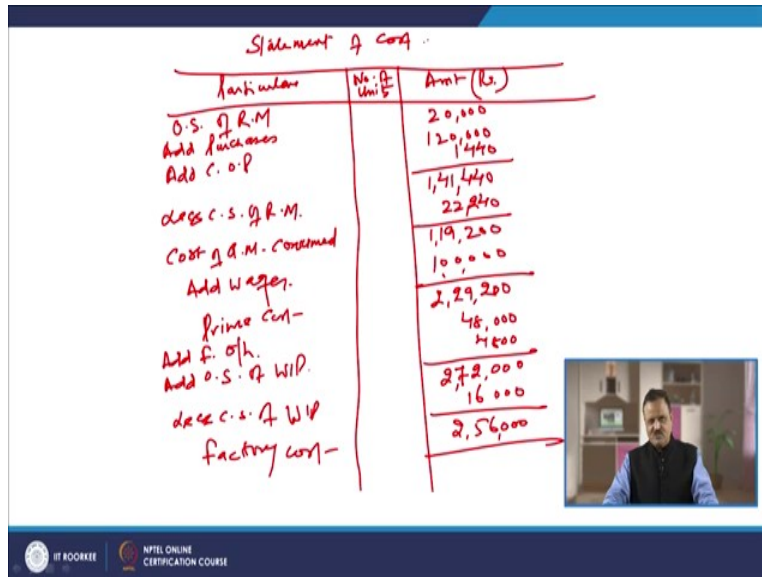 Statement of Cost
Particulars No. of Units Amt (Rs.)
O.S. of R.M 20,000
Add Purchases 120,000
Add C.O.P 1440
1,41,440
Less C.S. of R.M. 22,240
Cost of R.M. Consumed 1,19,200
Add Wages. 1,0,0,000
Prime Cost 2,29,200
Add F. O/h. 48,000
Add O.S. of WIP. 4800
2,72,000
Less C.S. of WIP 16000
Factory Cost 2,56,000
IIT ROORKEE
NPTEL ONLINE
CERTIFICATION COURSE